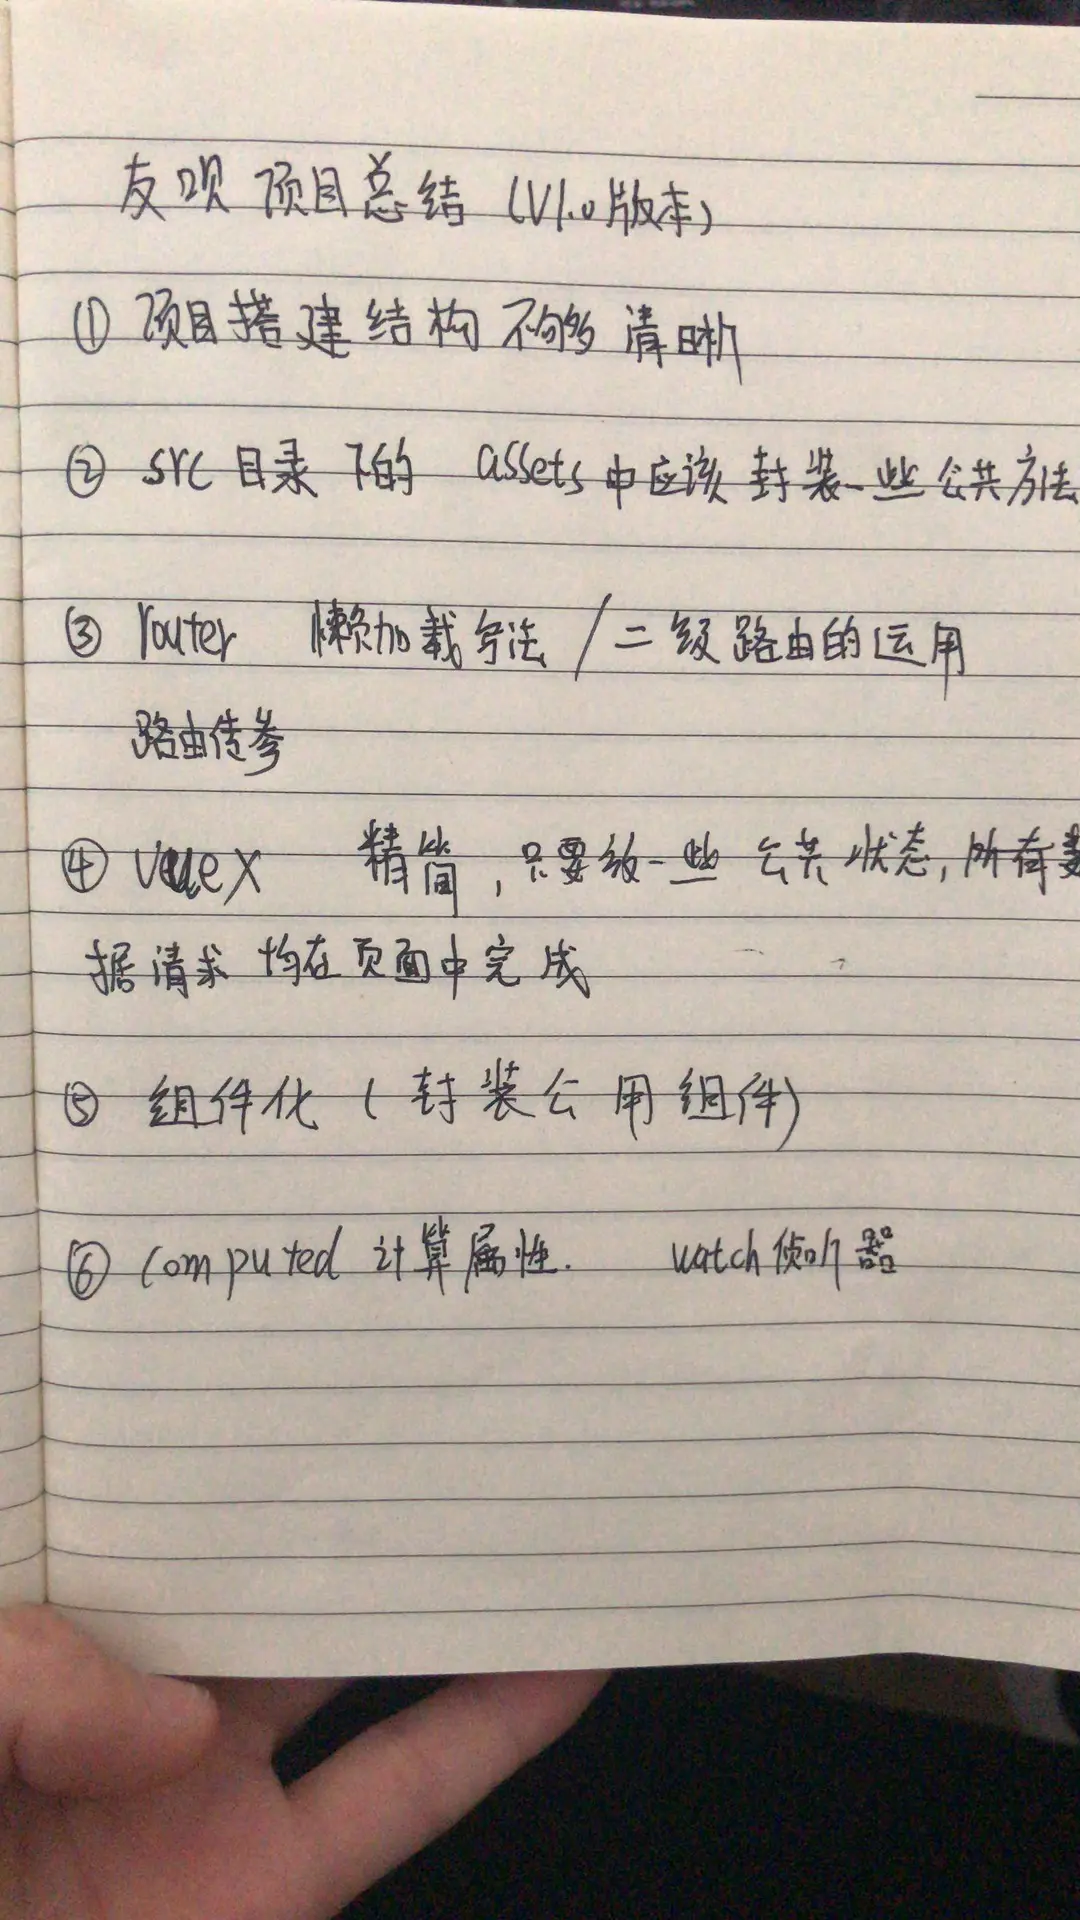 友呗 项目总结 (V1.0版本)
① 项目搭建结构 不够 清晰
② src 目录 下的 assets中应该 封装一些 公共方法
③ router 懒加载写法 / 二级路由的运用
路由传参
④ vuex 精简, 只要放一些 公共 状态, 所有数
据请求 均在页面中完成
⑤ 组件化 ( 封装公用组件)
⑥ computed 计算属性. watch侦听器